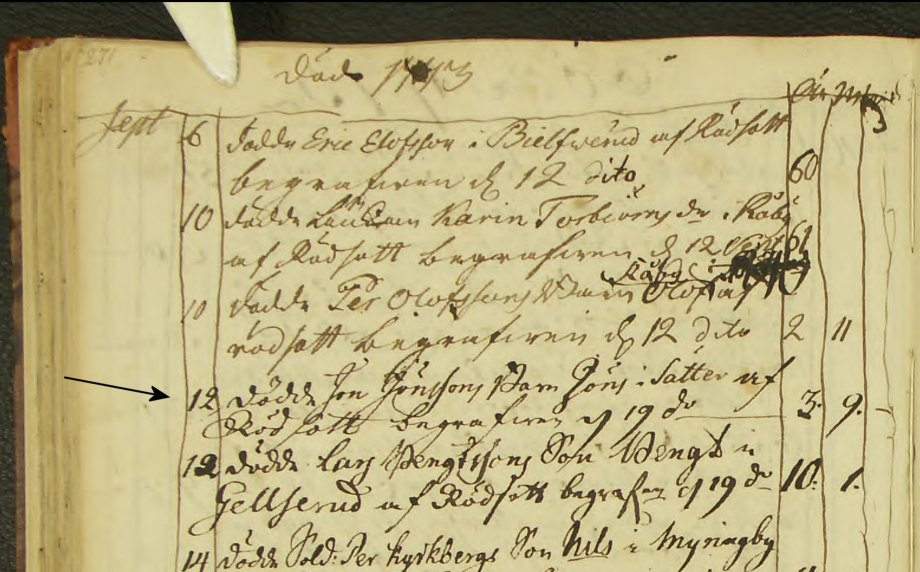 271
Död 1773
År M
Sept 6 dödde Eric Elofsson i Bielserud af Rödsått
begrafwen d 12 dito 60
10 dödde Karin Torbiörns dr i Råby
af Rödsått begrafwen d 12 Sept 61
Råby
10 dödde Per Olofssons Barn Olof af
rödsått begrafwen d 12 dito 2 11
12 dödde Jon Jönssons Barn Jöns i Sätter af
Rödsått begrafwen d 19 do 3. 9.
12 dödde Lars Bengtssons Son Bengt i
Gellserud af Rödsått begrafwen d 19 do 10. 1.
14 dödde Sold: Per Kyrkbergs Son Nils i Myringby